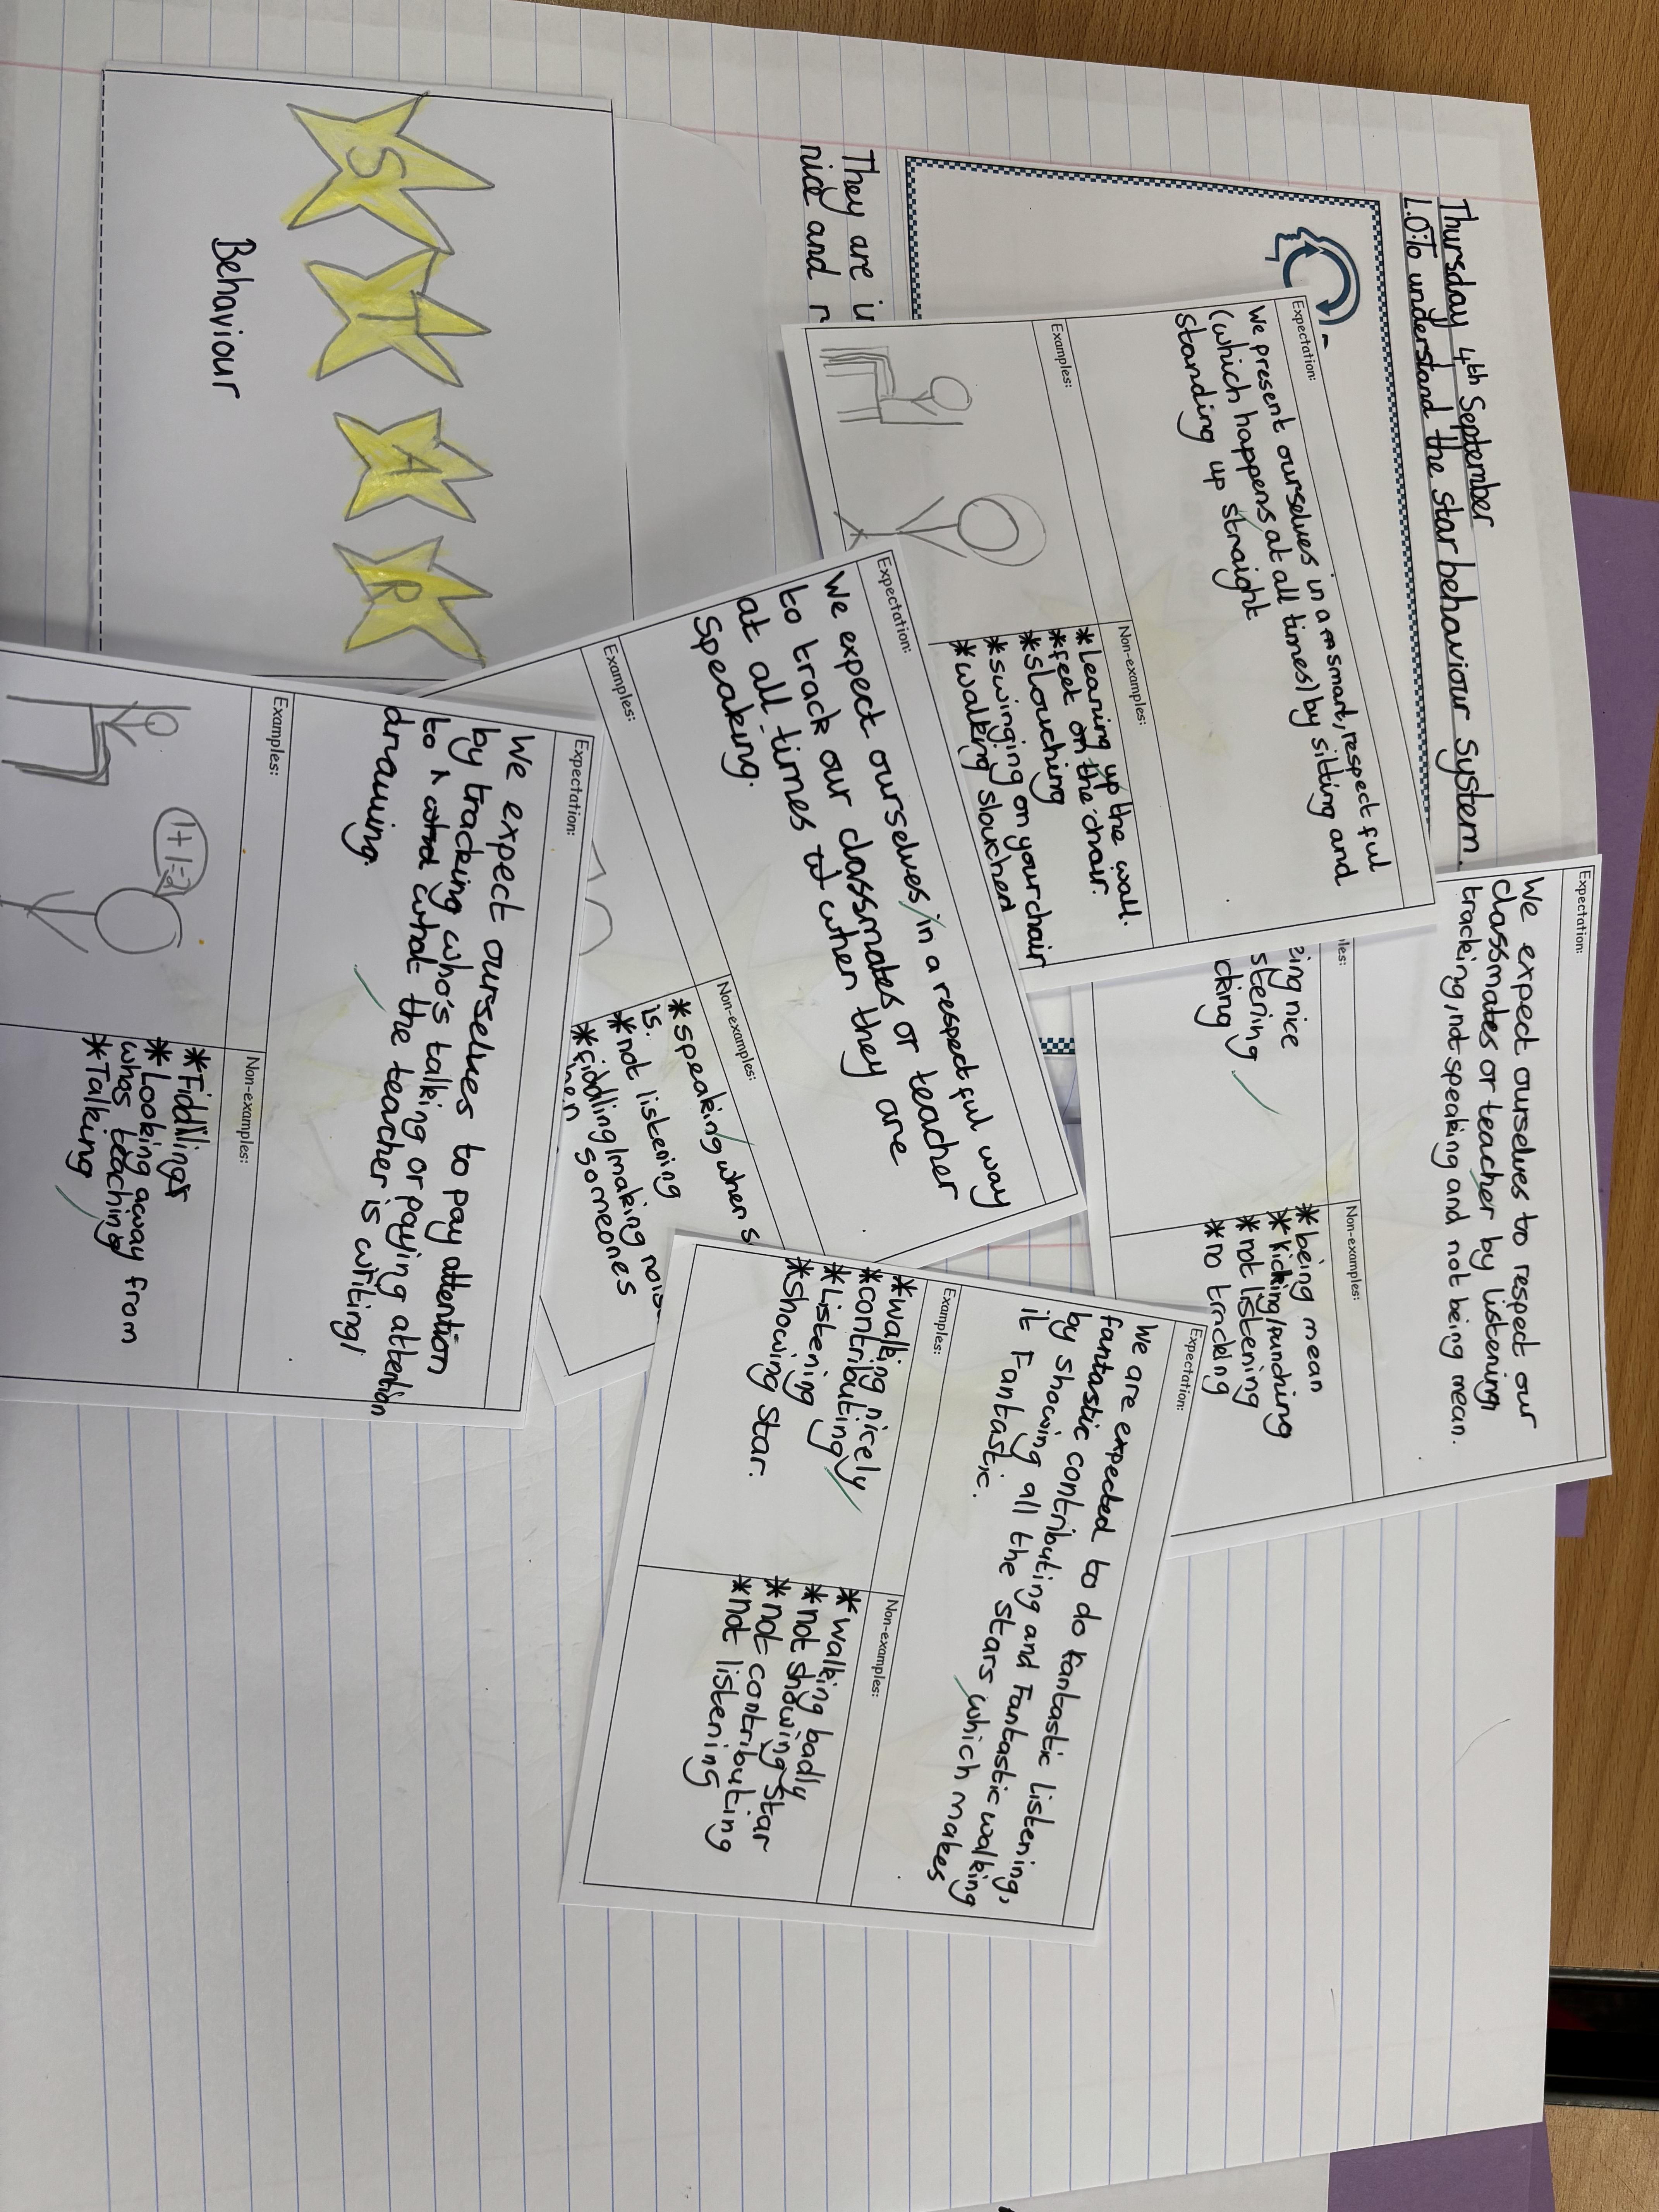 Thursday 4th September
L.O:To understand the star behaviour system.
They are
nice and
S T A R
Behaviour
Expectation:
We present ourselves in a smart, respectful
(which happens at all times) by sitting and
standing up straight
Examples:
Non-examples:
*Leaning up the wall.
*feet on the chair.
*slouching
*swinging on your chair
*walking slouched
Expectation:
We expect ourselves to respect our
classmates or teacher by listening,
tracking, not speaking and not being mean.
nice
Non-examples:
*being mean
*kicking/punching
*not listening
*no tracking
Expectation:
We expect ourselves in a respectful way
to track our classmates or teacher
at all times when they are
speaking.
Examples:
Non-examples:
*speaking when
is.
*not listening
*fiddling/making
someones
Expectation:
We expect ourselves to pay attention
by tracking who's talking or paying attention
to what the teacher is writing/
drawing.
Examples:
1+1=2
Non-examples:
*Fiddling
*Looking away from
whos teaching
*Talking
Expectation:
We are expected to do fantastic listening,
fantastic contributing and Fantastic walking
by showing all the stars which makes
it Fantastic.
Examples:
*walking nicely
*contributing
*Listening
*showing star.
Non-examples:
*walking badly
*not showing star
*not contributing
*not listening